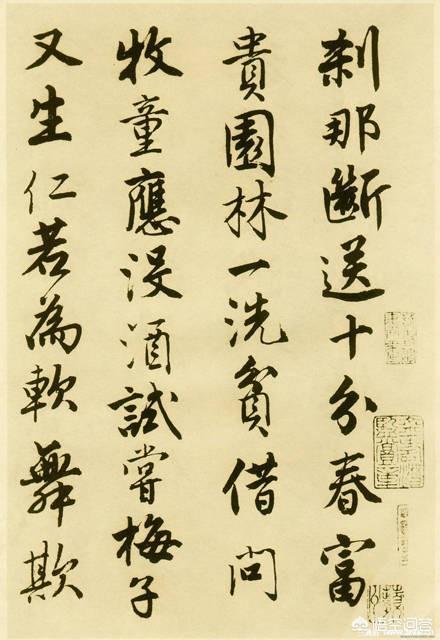 刹那斷送十分春富
貴園林一洗貧借問
牧童應沒酒試嘗梅子
又生仁若為軟舞欺
悟空问答